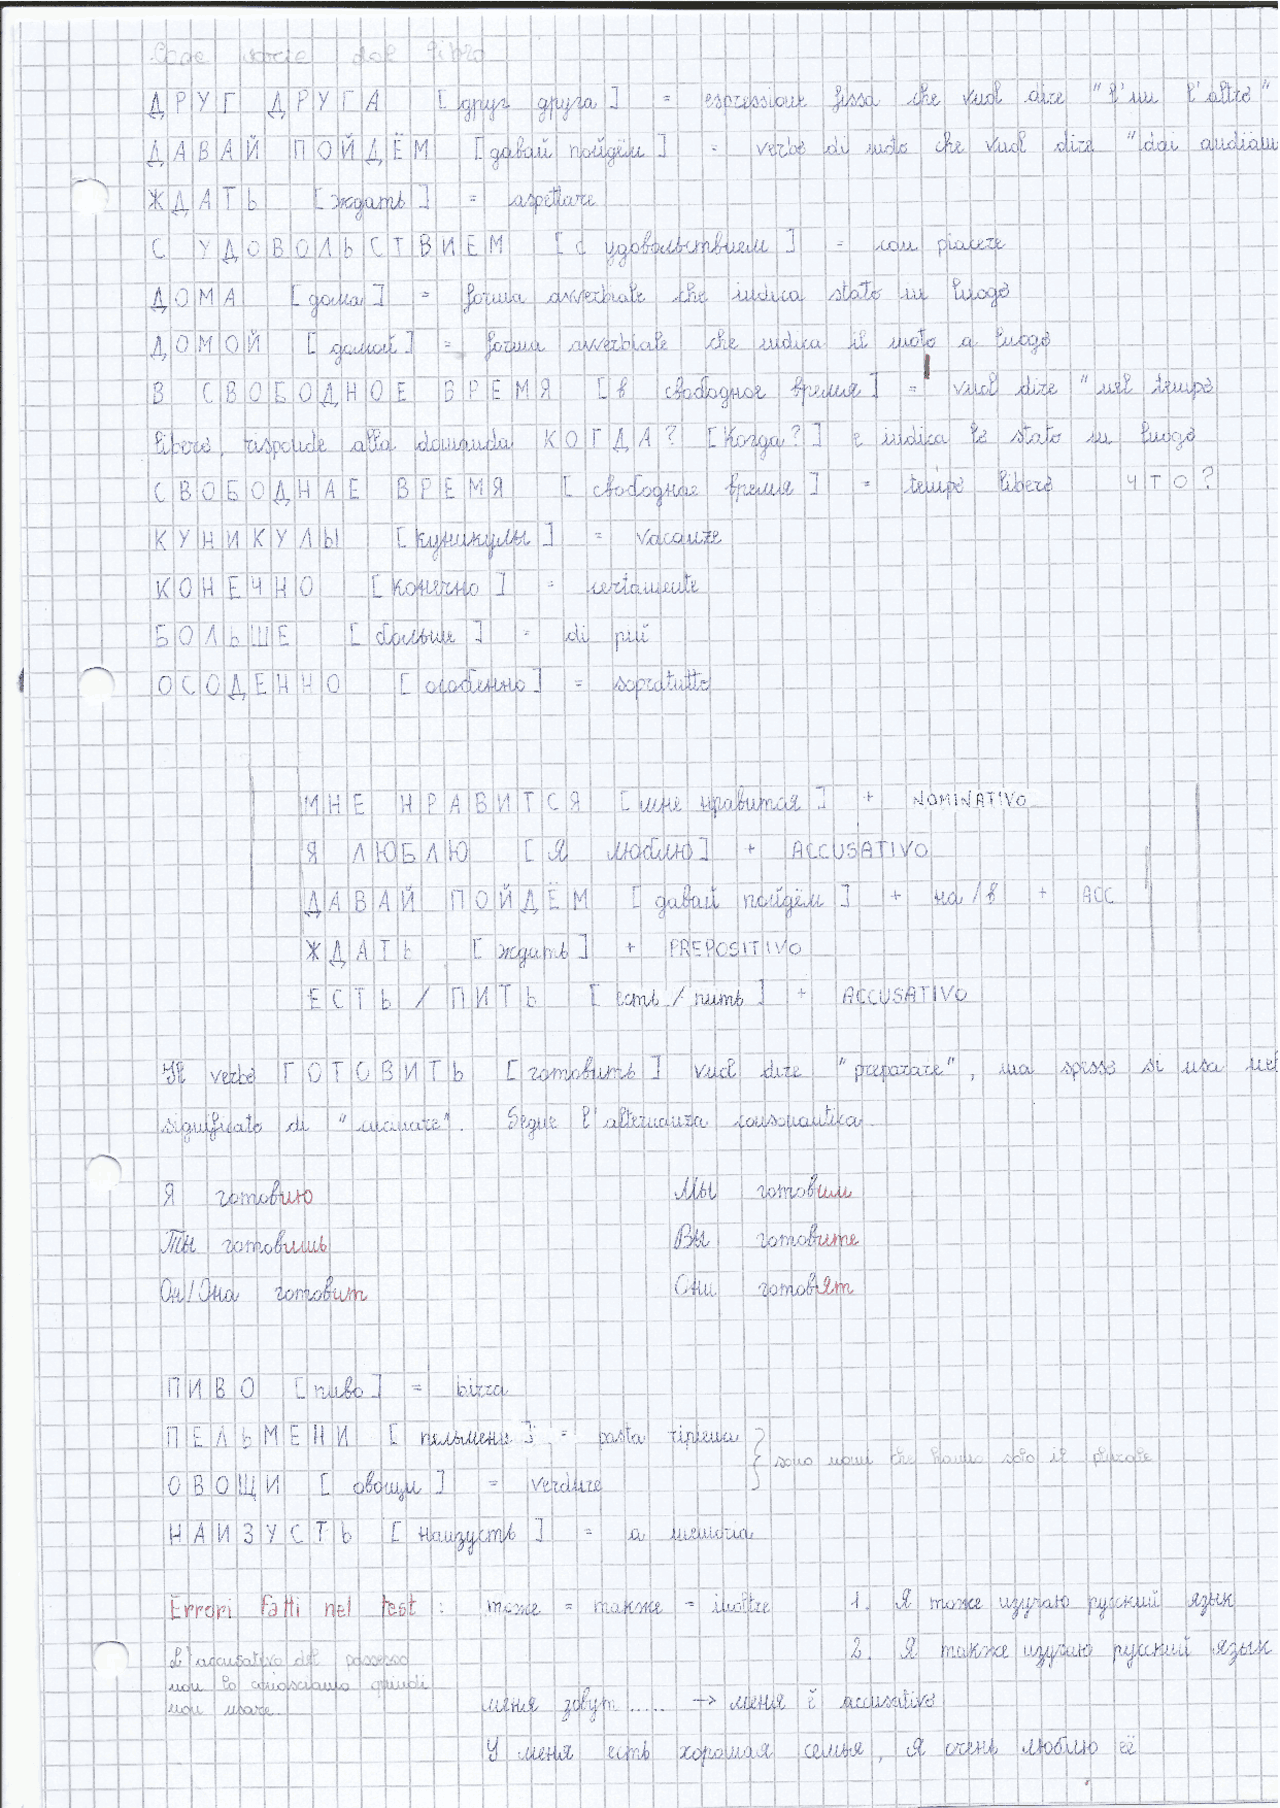 Cose varie dal libro
ДРУГ ДРУГА [друг друга] = espressione fissa che vuol dire "l'un l'altro"
ДАВАЙ ПОЙДЁМ [давай пойдём] = verbo di moto che vuol dire "dai andiam
ЖДАТЬ [ждать] = aspettare
С УДОВОЛЬСТВИЕМ [с удовольствием] = con piacere
ДОМА [дома] = forma avverbiale che indica stato in luogo
ДОМОЙ [домой] = forma avverbiale che indica il moto a luogo
В СВОБОДНОЕ ВРЕМЯ [в свободное время] = vuol dire "nel tempo
libero, risponde alla domanda КОГДА? [Когда?] e indica lo stato in luogo
СВОБОДНАЕ ВРЕМЯ [свободнае время] = tempo libero ЧТО?
КУНИКУЛЫ [куникулы] = vacanze
КОНЕЧНО [конечно] = certamente
БОЛЬШЕ [больше] = di più
ОСОДЕННО [особенно] = sopratutto
МНЕ НРАВИТСЯ [мне нравится] + NOMINATIVO
Я ЛЮБЛЮ [Я люблю] + ACCUSATIVO
ДАВАЙ ПОЙДЁМ [давай пойдём] + на/в + ACC
ЖДАТЬ [ждать] + PREPOSITIVO
ЕСТЬ / ПИТЬ [есть / пить] + ACCUSATIVO
Il verbo ГОТОВИТЬ [готовить] vuol dire "preparare", ma spesso si usa nel
significato di "cucinare". Segue l'alternanza consonantica.
Я готовию Мы готовим
Ты готовишь Вы готовите
Он/Она готовит Они готовят
ПИВО [пиво] = birra
ПЕЛЬМЕНИ [пельмени] = pasta ripiena
ОВОЩИ [овощи] = verdure } sono nomi che hanno solo il plurale
НАИЗУСТЬ [наизусть] = a memoria
Errori fatti nel test: тоже = также = inoltre 1. Я тоже изучаю русский язык
2. Я также изучаю русский язык
L'accusativo del possesso
non lo conosciamo quindi
non usare.
меня зовут ..... → меня è accusativo
У меня есть хорошая семья, я очень люблю её